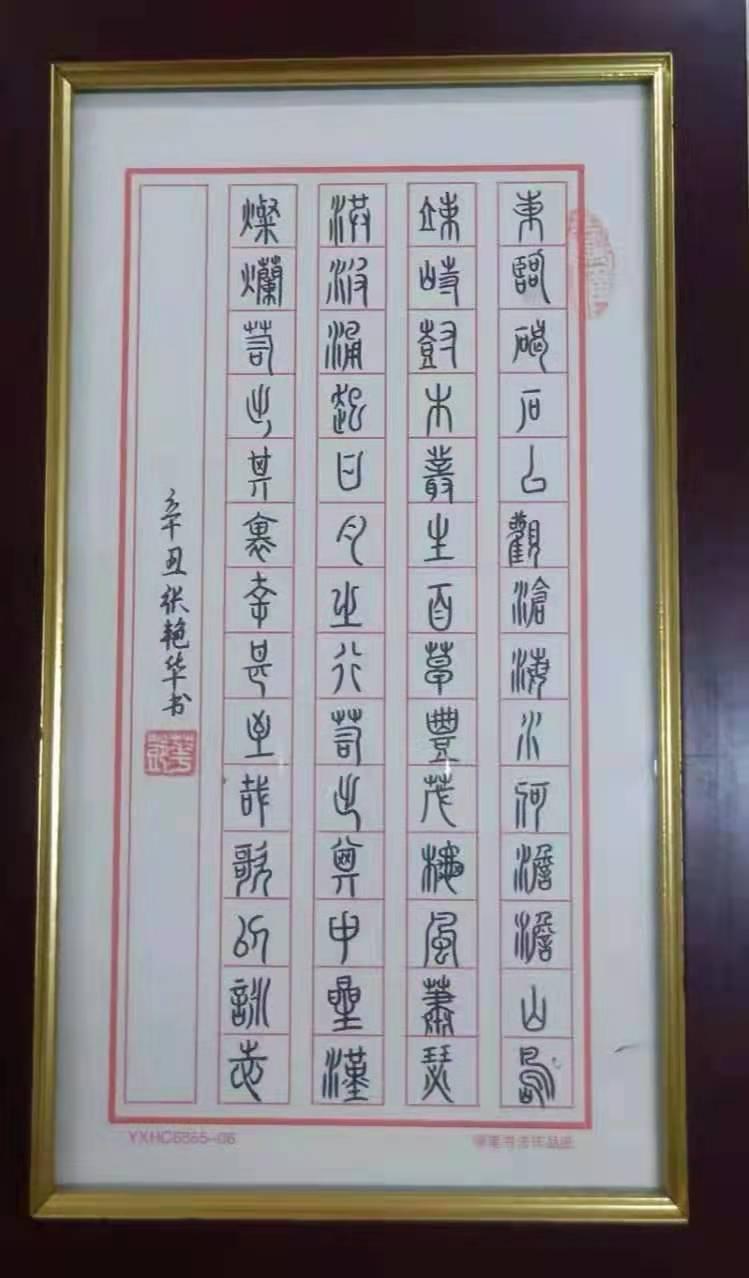 東臨碣石以觀滄海水何澹澹山島
竦峙樹木叢生百草豐茂秋風蕭瑟
洪波涌起日月之行若出其中星漢
燦爛若出其裏幸甚至哉歌以詠志
辛丑张艳华书
硬笔书法作品纸